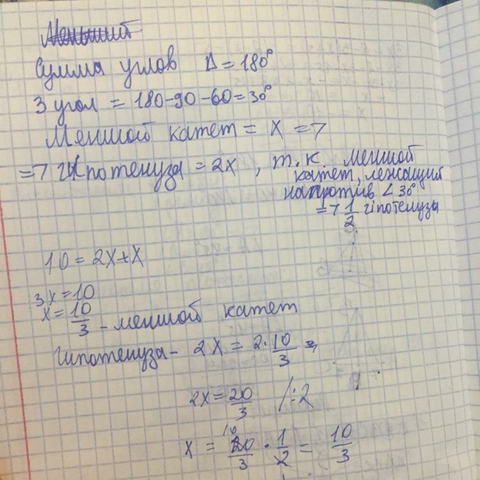 Сумма углов Δ = 180°
3 угол = 180-90-60=30°
Меншой катет = x =7
=7 Гіпотенуза = 2x, т.к. меншой
катет, лежащий
напротив ∠30°
=7 1/2 гіпотенуза
10 = 2x+x
3x = 10
x = 10/3 - меншой катет
Гіпотенуза - 2x = 2·10/3 =
2x = 20/3 /:2
x = 20/3 · 1/2 = 10/3